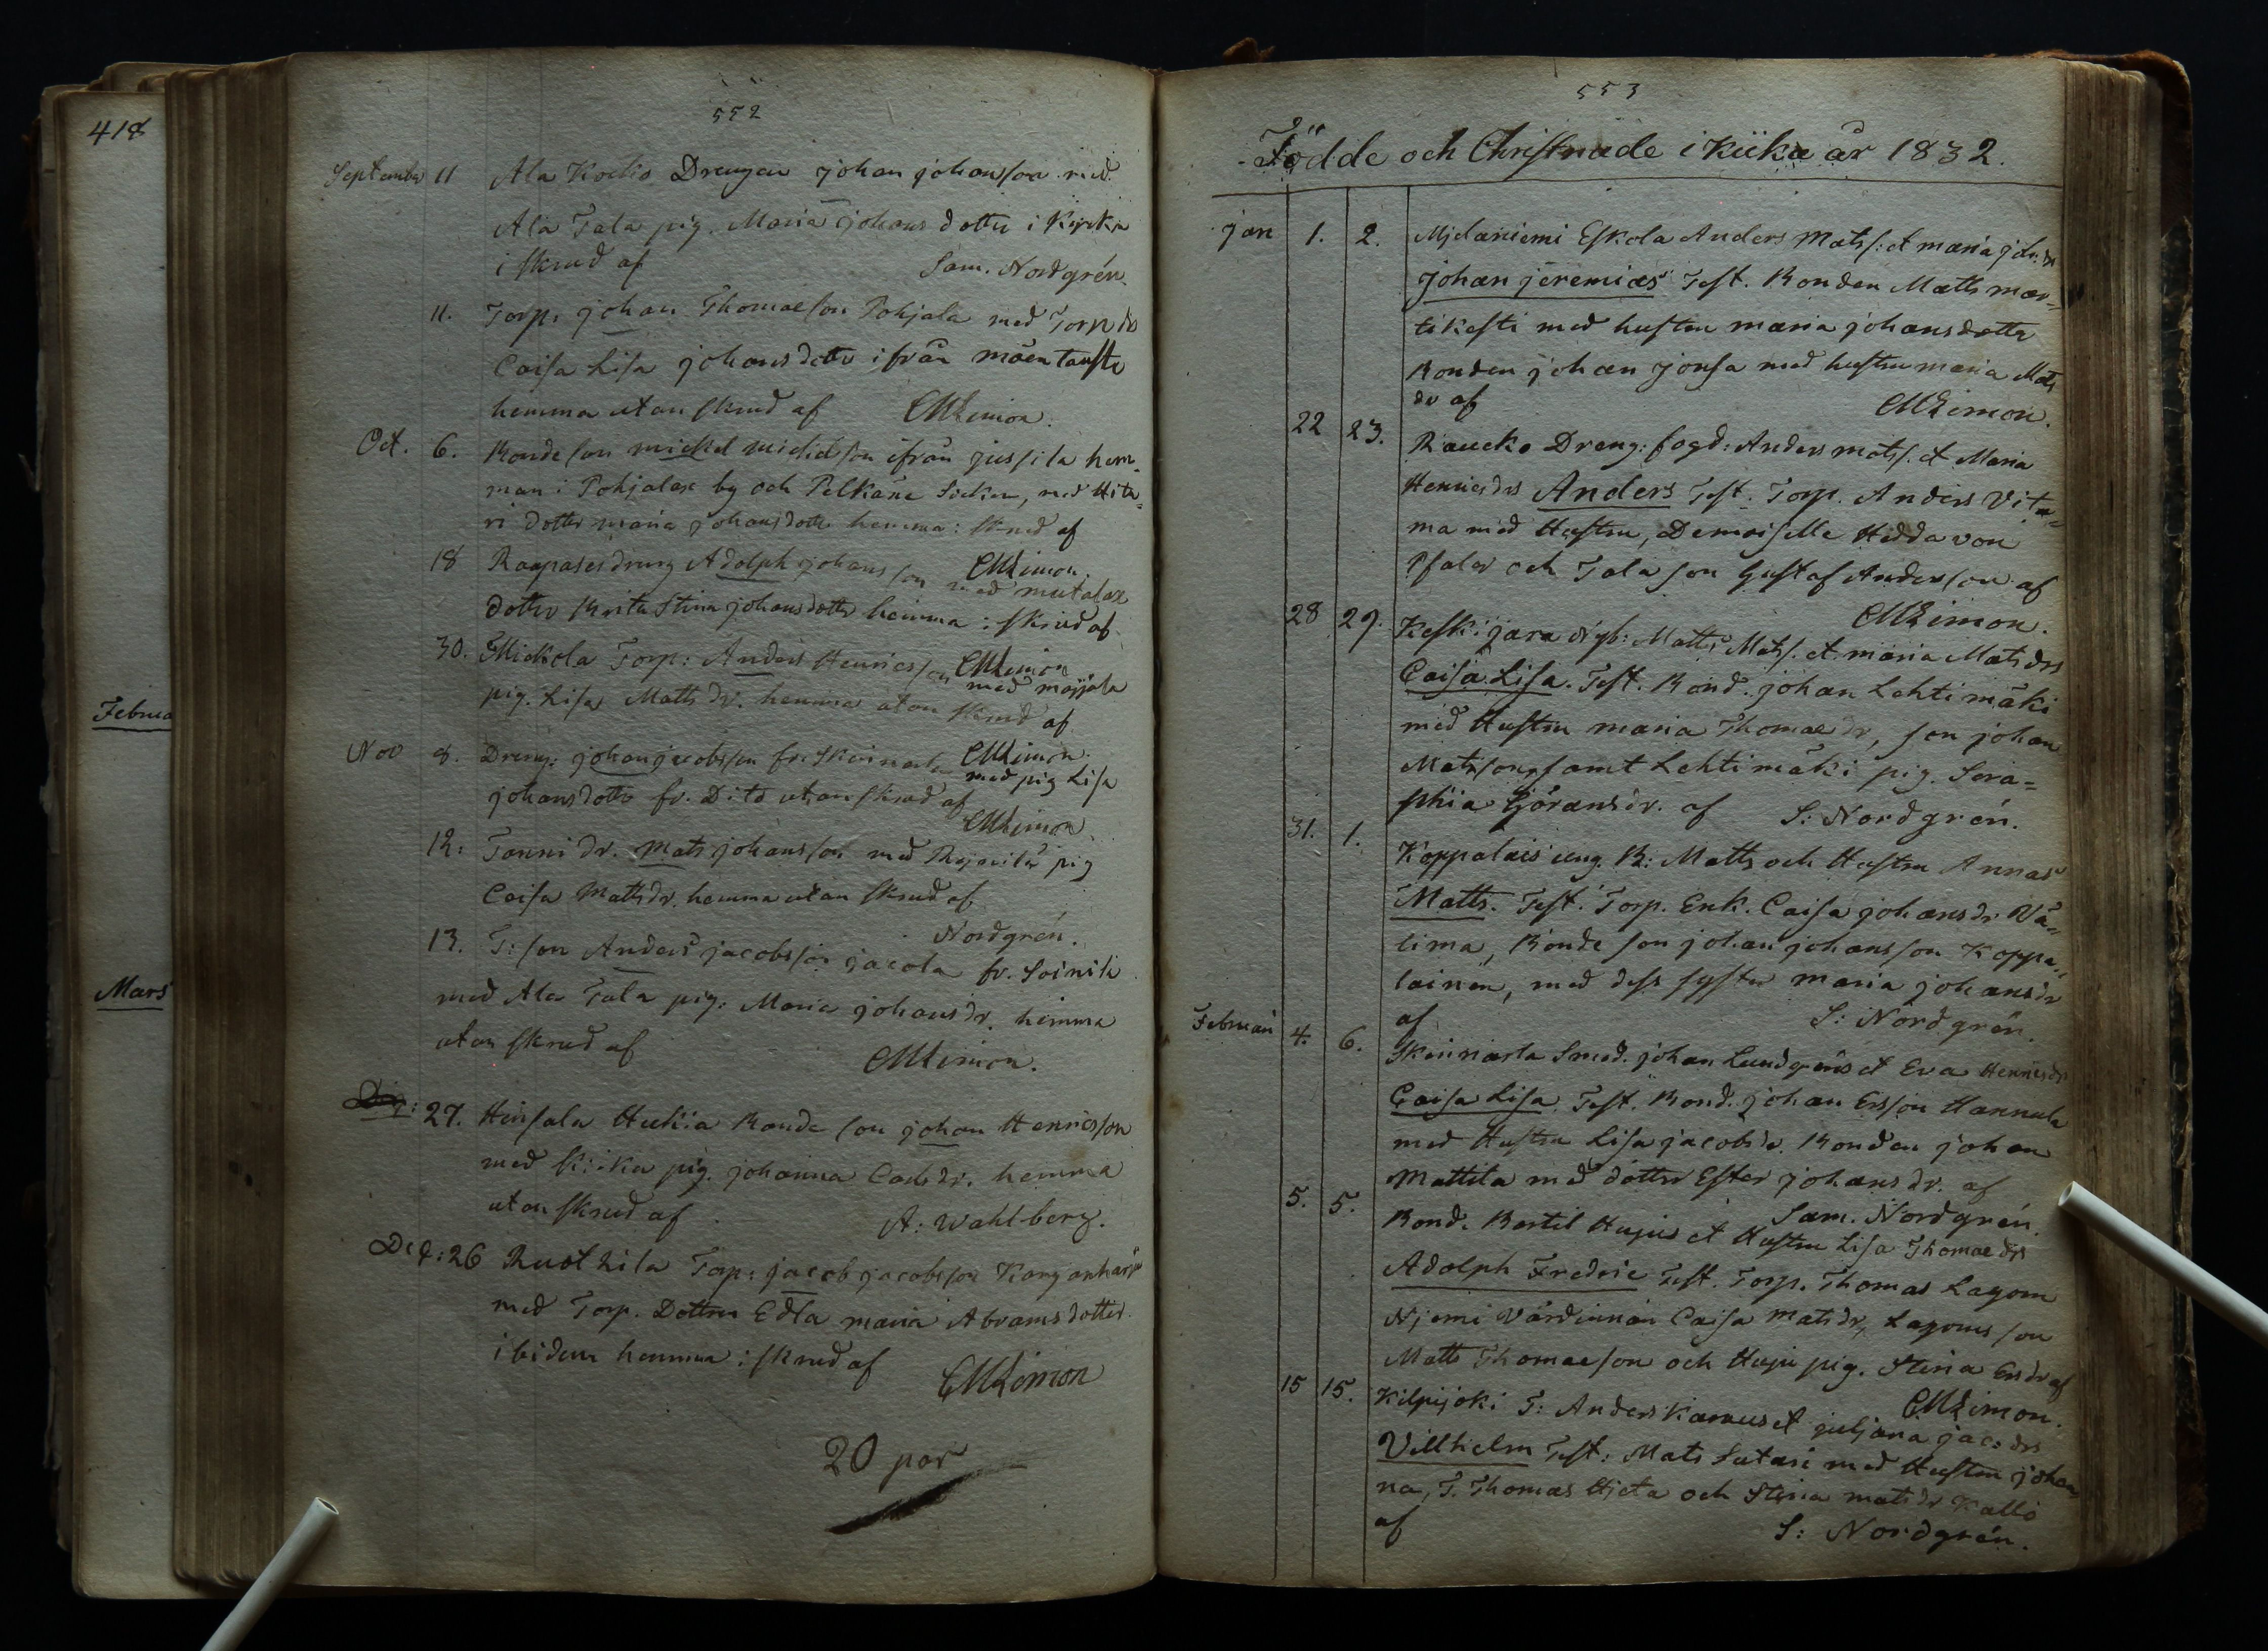 418
Februa
Mars
552
September 11 Ala Kockis Drengen johan johansson med
Ala Tala pig. Maria johans dotter i Kyrka
i skrud af Sam. Nordgrén.
11. Torp. johan Thomaeson Pohjala med Torp dr
Caisa Lisa johansdotter ifrån
hemma utan skrud af CMLimon.
Oct. 6. Bondeson mickel ifrån jussila hem-
man i Pohjalax by och Pelkäne Socken, med
dotter maria johansdotter hemma i skrud af
CMLimon.
18 dreng Adolph johansson med
dotter Brita Stina johansdotter hemma i skrud af
CMLimon
30. Mickola Torp: Anders Henricsson med
pig. Lisa Matts dr. hemma utan skrud af
CMLimon.
Nov 8. Dreng: johan jacobsson fr. med pig Lisa
johansdotter fr. Dito utan skrud af
CMLimon
12: Tanni dr. Mats johansson med pig
Caisa Mattsdr. hemma utan skrud af
Nordgrén.
13. T: son Anders jacobsson jacola fr. Soinila
med Ala Tala pig: Maria johansdr. hemma
utan skrud af CMLimon.
27. Huhtia Bonde son johan Henricsson
med Kiika pig. johanna dr. hemma
utan skrud af A: Wahlberg.
Dec: 26 Torp: jacob jacobsson
med Torp. Dottren Edla maria Abramsdotter
ibidem hemma i skrud af CMLimon
20 par
553
Födde och Christnade i Kiika år 1832.
jan 1. 2. Mjelaniemi Eskola Anders Mats: et maria joh: dr
johan jeremias Test. Bonden Matts mar-
tikesti med hustru maria johansdotter
Bonden johan jonsa med hustru maria Mats
dr af CMLimon.
22 23. Raucko Dreng: fogd: Anders mats. et Maria
Henricsdrs Anders Test. Torp. Anders Vita-
ma med Hustru, Demoiselle Hedda von
Pfaler och Tala son Gustaf Andersson af
CMLimon.
28 29. Keskijara Nyb: Matts Mats. et maria Matsdrs
Caisa Lisa. Test. Bond. johan Lehtimäki
med Hustru maria Thomaedr, son johan
Matsson, samt Lehtimäki pig. Sera-
phia Göransdr. af S: Nordgrén.
31. 1. Koppalais ung. B: Matts och Hustru Annas
Matts. Test. Torp. Enk. Caisa johansdr Vä-
lima, Bonde son johan johansson Koppa-
lainen, med dess syster maria johansdr
af S: Nordgrén.
Februari 4. 6. Skinnarla Smed. johan Lundgrens et Eva Henricsdr
Caisa Lisa. Test. Bond. johan Ersson Hannula
med Hustru Lisa jacobsdr. Bonden johan
Mattila med dotter Ester johansdr. af
Sam. Nordgrén.
5. 5. Bond. Bertil Hujus et Hustru Lisa Thomaedrs
Adolph Fredric Test. Torp. Thomas Lagom
Njemi Värdinnan Caisa Matsdr, Lagoms son
Matts Thomaeson och Huju pig. Stina Ersdr af
CMLimon.
15 15. Kilpijoki T: Anders Kamus et juljana jac: drs
Villhelm Test: Mats Sutari med Hustru johan-
na, T. Thomas Hjeta och Stina matsdr Kallo
af S: Nordgrén.